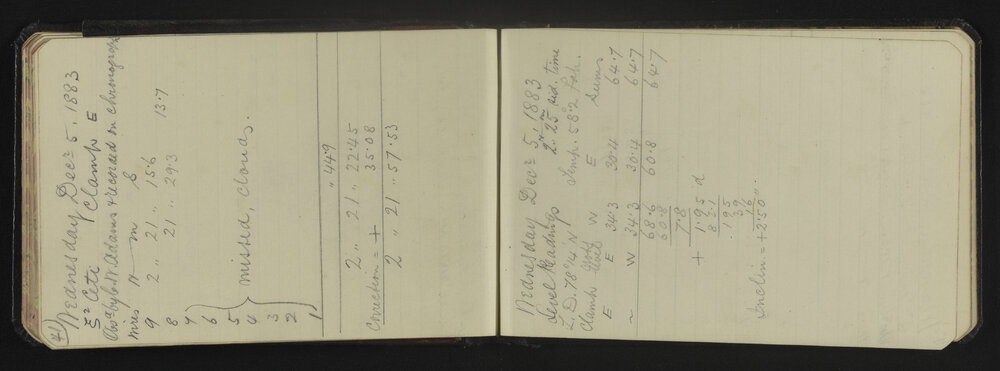 41
Wednesday Decr 5, 1883
ξ² Ceti Clamp E
Obsd by C.W. Adams & recorded on chronograph
wires H m s
9 2 " 21 " 15.6
8 21 " 29.3 13.7
7
6
5 missed, clouds.
4
3
2
1
" 44.9
2 " 21 " 22.45
Correction = + 35.08
2 " 21 " 57.53
Wednesday Decr 5, 1883
Level Readings 2h 25m sid. time
Z.D. 78°14 N Temp. 58°.2 Fah.
Clamp Level W E Sums
E E 34.3 30.4 64.7
" W 34.3 30.4 64.7
68.6 60.8 64.7
60.8
7.8
+ 1.95 d
195
39
16
Inclin = + 2.50"